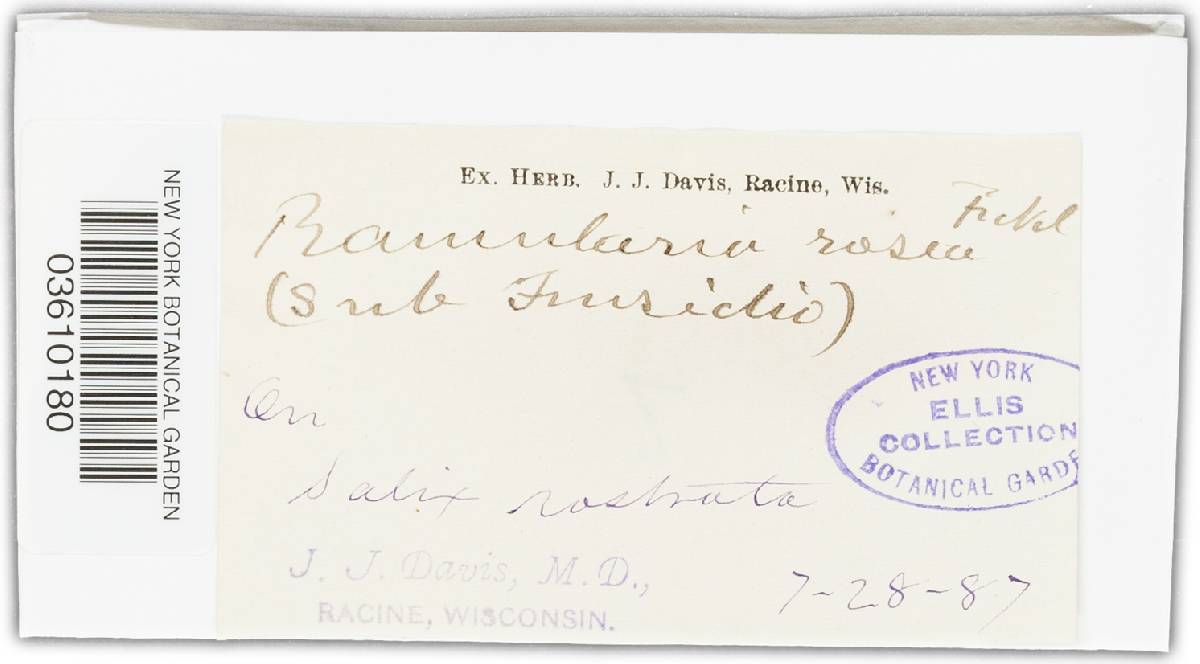 NEW YORK BOTANICAL GARDEN
03610180
Ex. Herb. J. J. Davis, Racine, Wis.
Ramularia rosea Fukl
(Sub Fusidio)
On
Salix rostrata
NEW YORK
ELLIS
COLLECTION
BOTANICAL GARDE
J. J. Davis, M.D.,
RACINE, WISCONSIN.
7-28-87